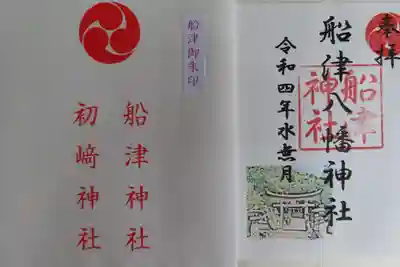 奉拝
船津八幡神社
船津神社
令和四年水無月
船津御朱印
船津神社
初﨑神社